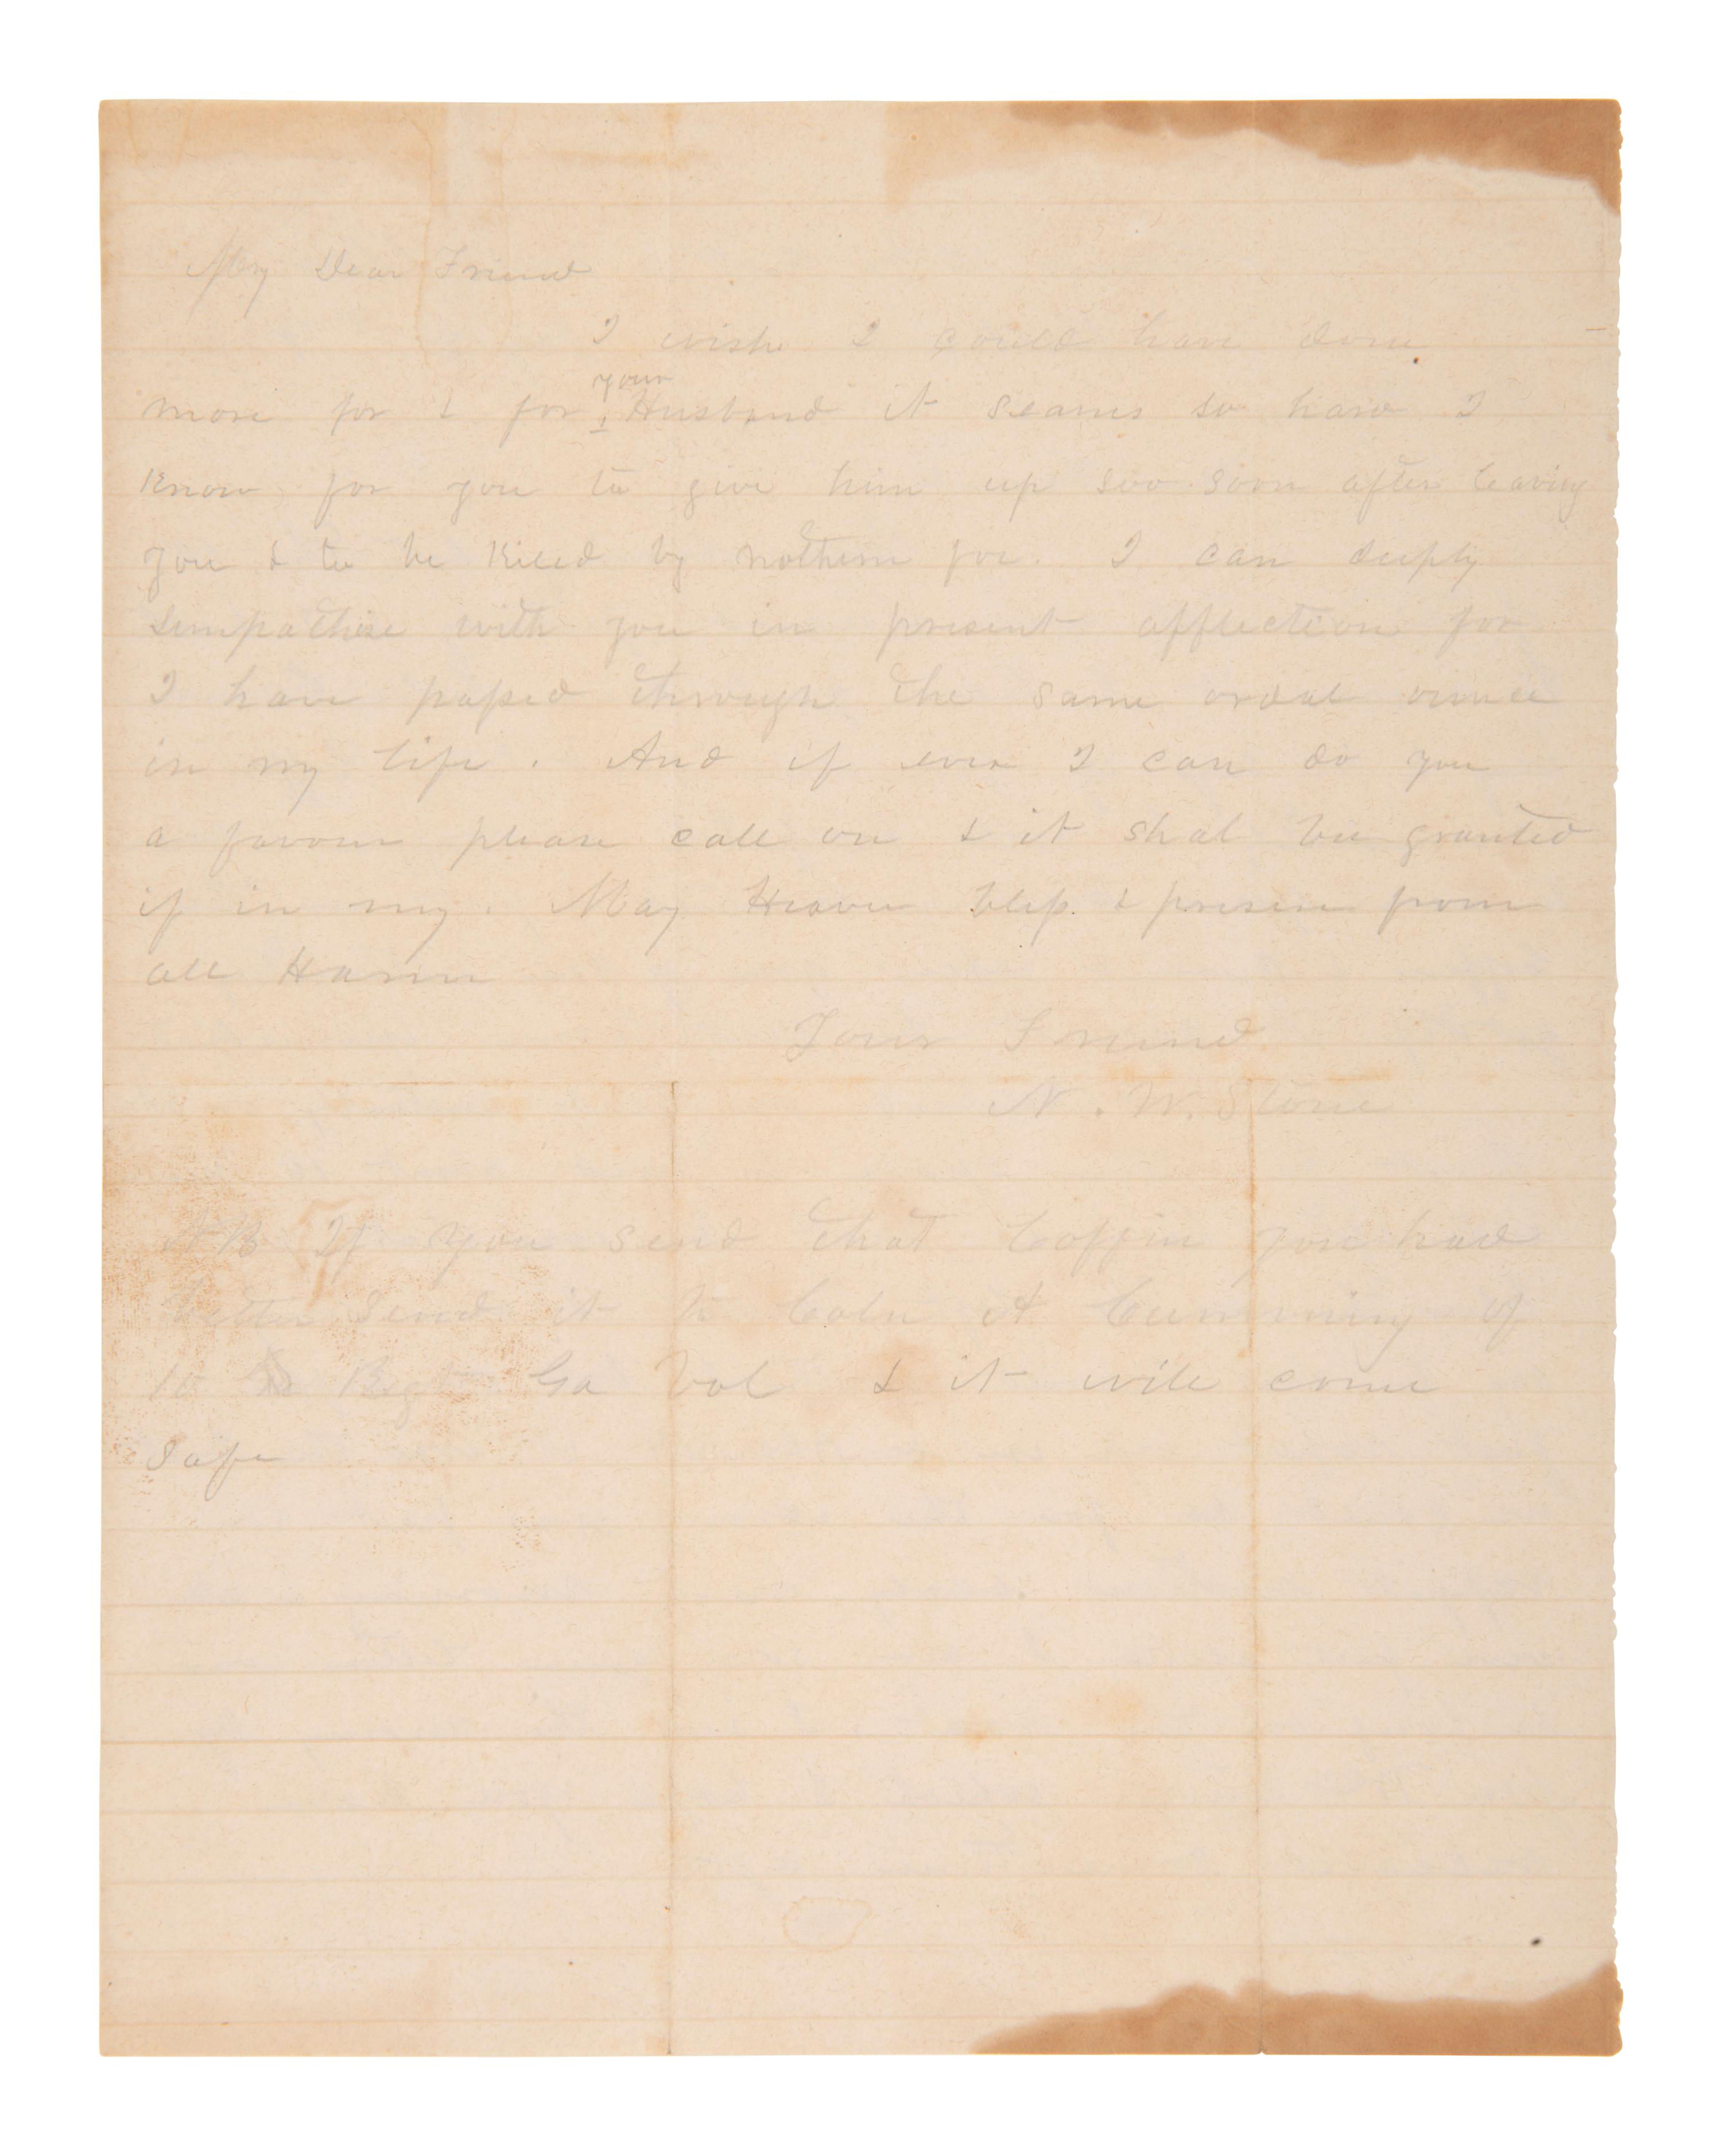 My Dear Friend
I wish I could have done
more for & for your Husband it seams so hard I
know for you to give him up soo soon after leaving
you & to be Kiled by nothern foe. I can deeply
simpathise with you in present afflection for
I have passed through the same ordeal ounce
in my life. And if ever I can do you
a favour please call on & it shal bee granted
if in my. May Heaven bless & preserve from
all Harm
Your Friend
N. W. Stone
NB If you send that Coffin you had
better send it to Coln A Cumming of
10 Regt Ga Vol & it will come
Safe